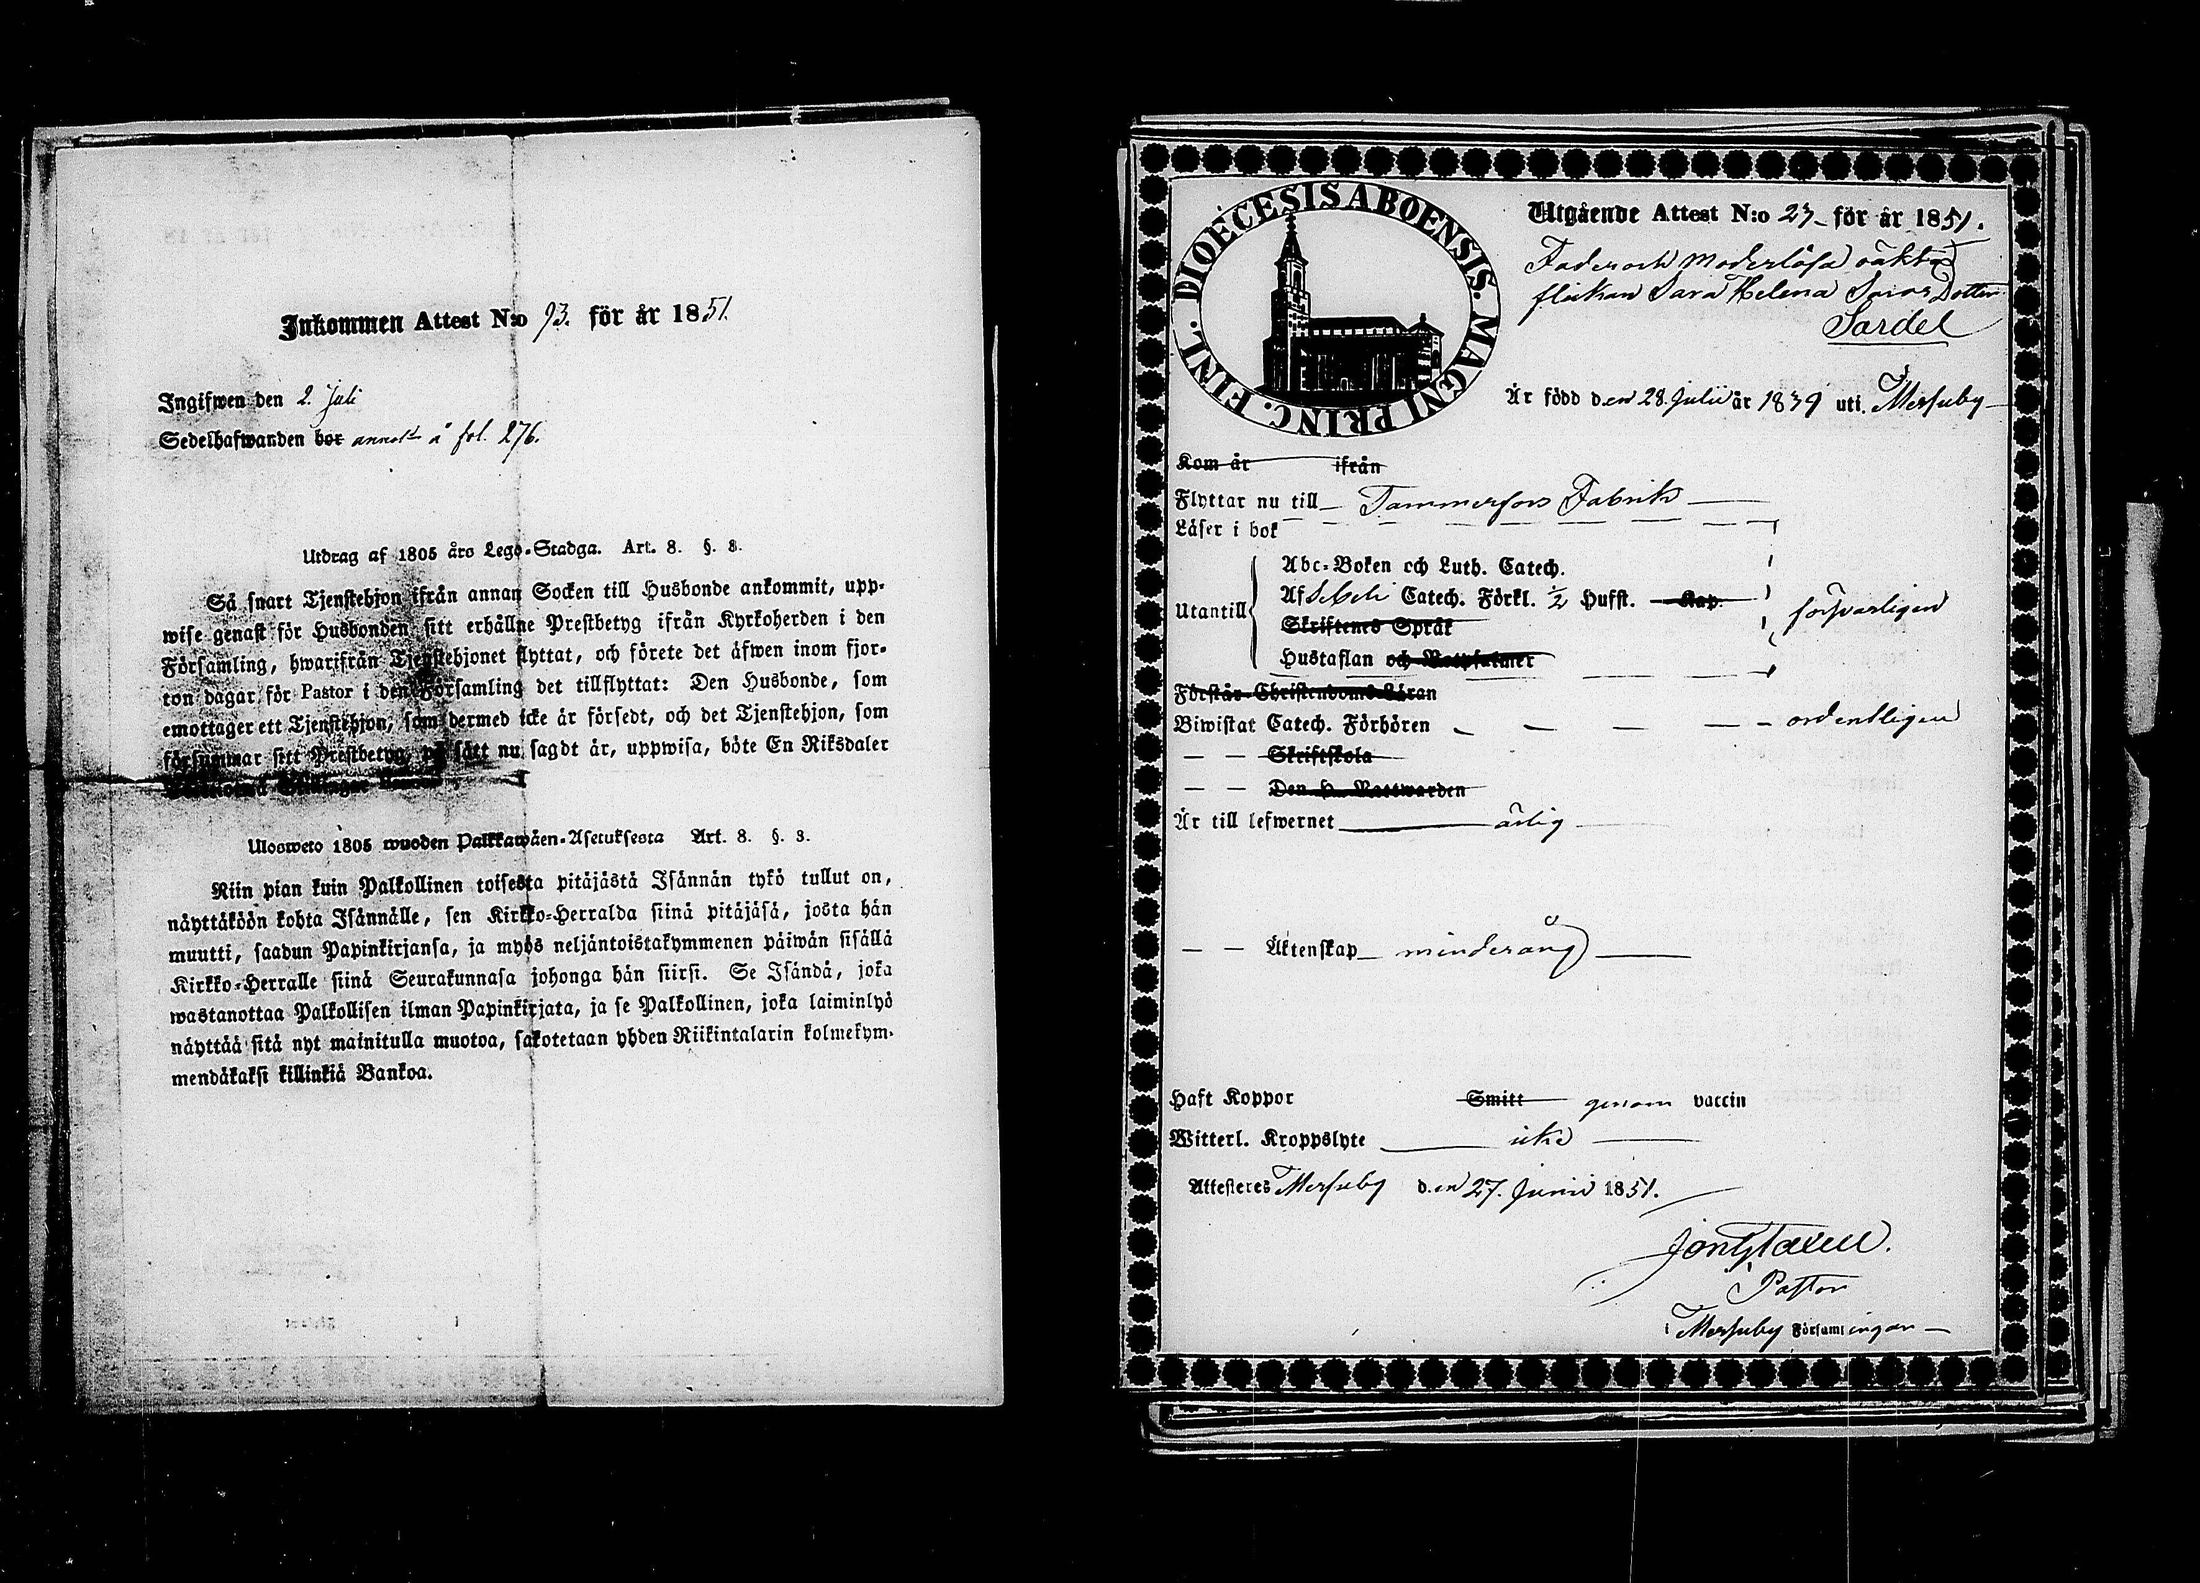 Inkommen Attest N:o 93. för år 1851.
Ingifwen den 2. Juli
Sedelhafwanden bor annot å fol. 276.
Utdrag af 1805 års Lego-Stadga. Art. 8. §. 3.
Så snart Tjenstehjon ifrån annan Socken till Husbonde ankommit, upp-
wise genast för Husbonden sitt erhållne Prestbetyg ifrån Kyrkoherden i den
Församling, hwarifrån Tjenstehjonet flyttat, och förete det äfwen inom fjor-
ton dagar för Pastor i den Församling det tillflyttat: Den Husbonde, som
emottager ett Tjenstehjon, som dermed icke är försedt, och det Tjenstehjon, som
försummar sitt Prestbetyg, på sätt nu sagdt är, uppwisa, böte En Riksdaler
Ulosweto 1805 wuoden Palkkawäen-Asetuksesta Art. 8. §. 3.
Niin pian kuin Palkollinen toisesta pitäjästä Isännän tykö tullut on,
näyttäköön kohta Isännälle, sen Kirkko-Herralda siinä pitäjäsä, josta hän
muutti, saadun Papinkirjansa, ja myös neljäntoistakymmenen päiwän sisällä
Kirkko-Herralle siinä Seurakunnasa johonga hän siirsi. Se Isändä, joka
wastanottaa Palkollisen ilman Papinkirjata, ja se Palkollinen, joka laiminlyö
näyttää sitä nyt mainitulla muotoa, sakotetaan yhden Riikintalarin kolmekym-
mendäkaksi killinkiä Bankoa.
DIOECESIS ABOENSIS. MAGNI PRINC. FINL.
Utgående Attest N:o 23 för år 1851.
Fader och Moderlösa
flickan Sara Helena Dotter
Sardel
Är född den 28. Julii år 1839 uti
Kom år ifrån
Flyttar nu till Tammerfors Fabrik
Läser i bok
Abc-Boken och Luth. Catech.
Utantill Af Catech. Förkl. 1/2 Husst. Kap.
Skriftenes Språk försvarligen
Hustaflan och Botpsalmer
Förstår Christendoms-Läran
Biwistat Catech. Förhören ordentligen
— — Skriftskola
— — Den H. Nattwarden
Är till lefwernet ärlig
— — Äktenskap minderårig
Haft Koppor Smitt genom vaccin
Witterl. Kroppslyte icke
Attesteres d. en 27. Junii 1851.
Pastor
i Församlingar